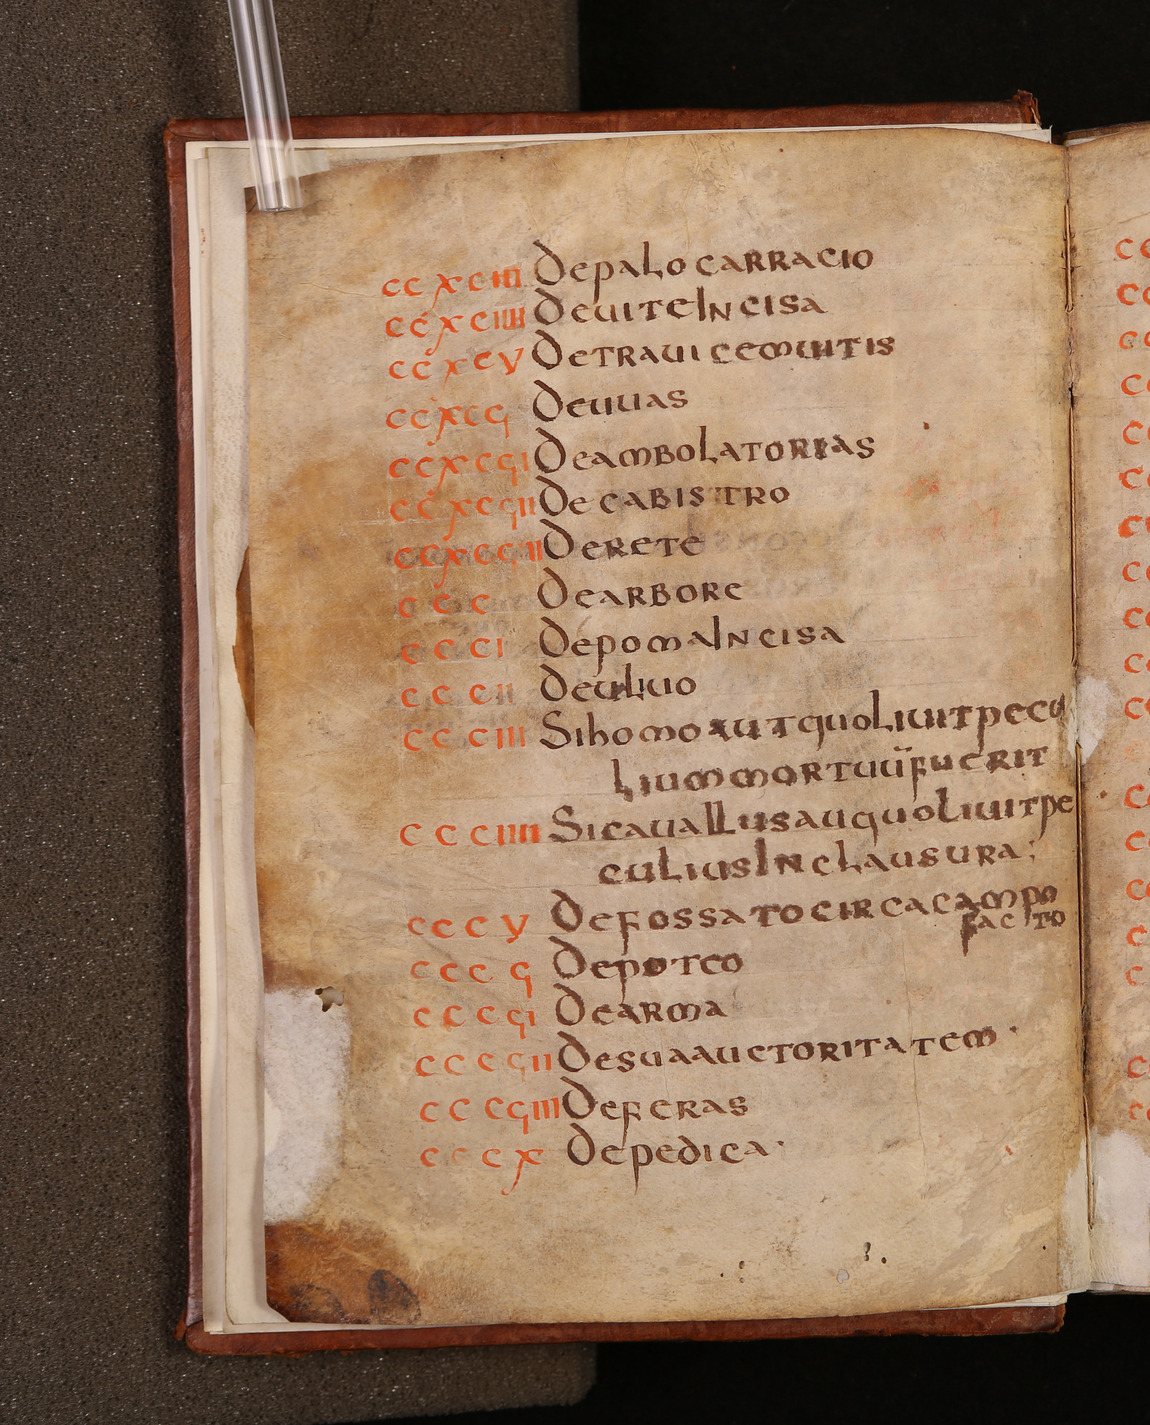 ccxciii De palo carracio
ccxciiii De uite Incisa
ccxcv De traui cem uitis
ccxcϛ De uuas
ccxcϛi De ambolatorias
ccxcϛii De cabistro
ccxcϛiii De rete
ccc De arbore
ccci De poma Incisa
cccii De uliuo
ccciii Si homo aut quoliuit pecu
lium mortuü fuerit
ccciiii Si cauallus au quoliuit pe
culius In clausura;
cccv De fossato circa campo
facto
cccϛ De poteo
cccϛi De arma
cccϛii De sua auctoritatem ·
cccϛiii De feras
cccx De pedica ·